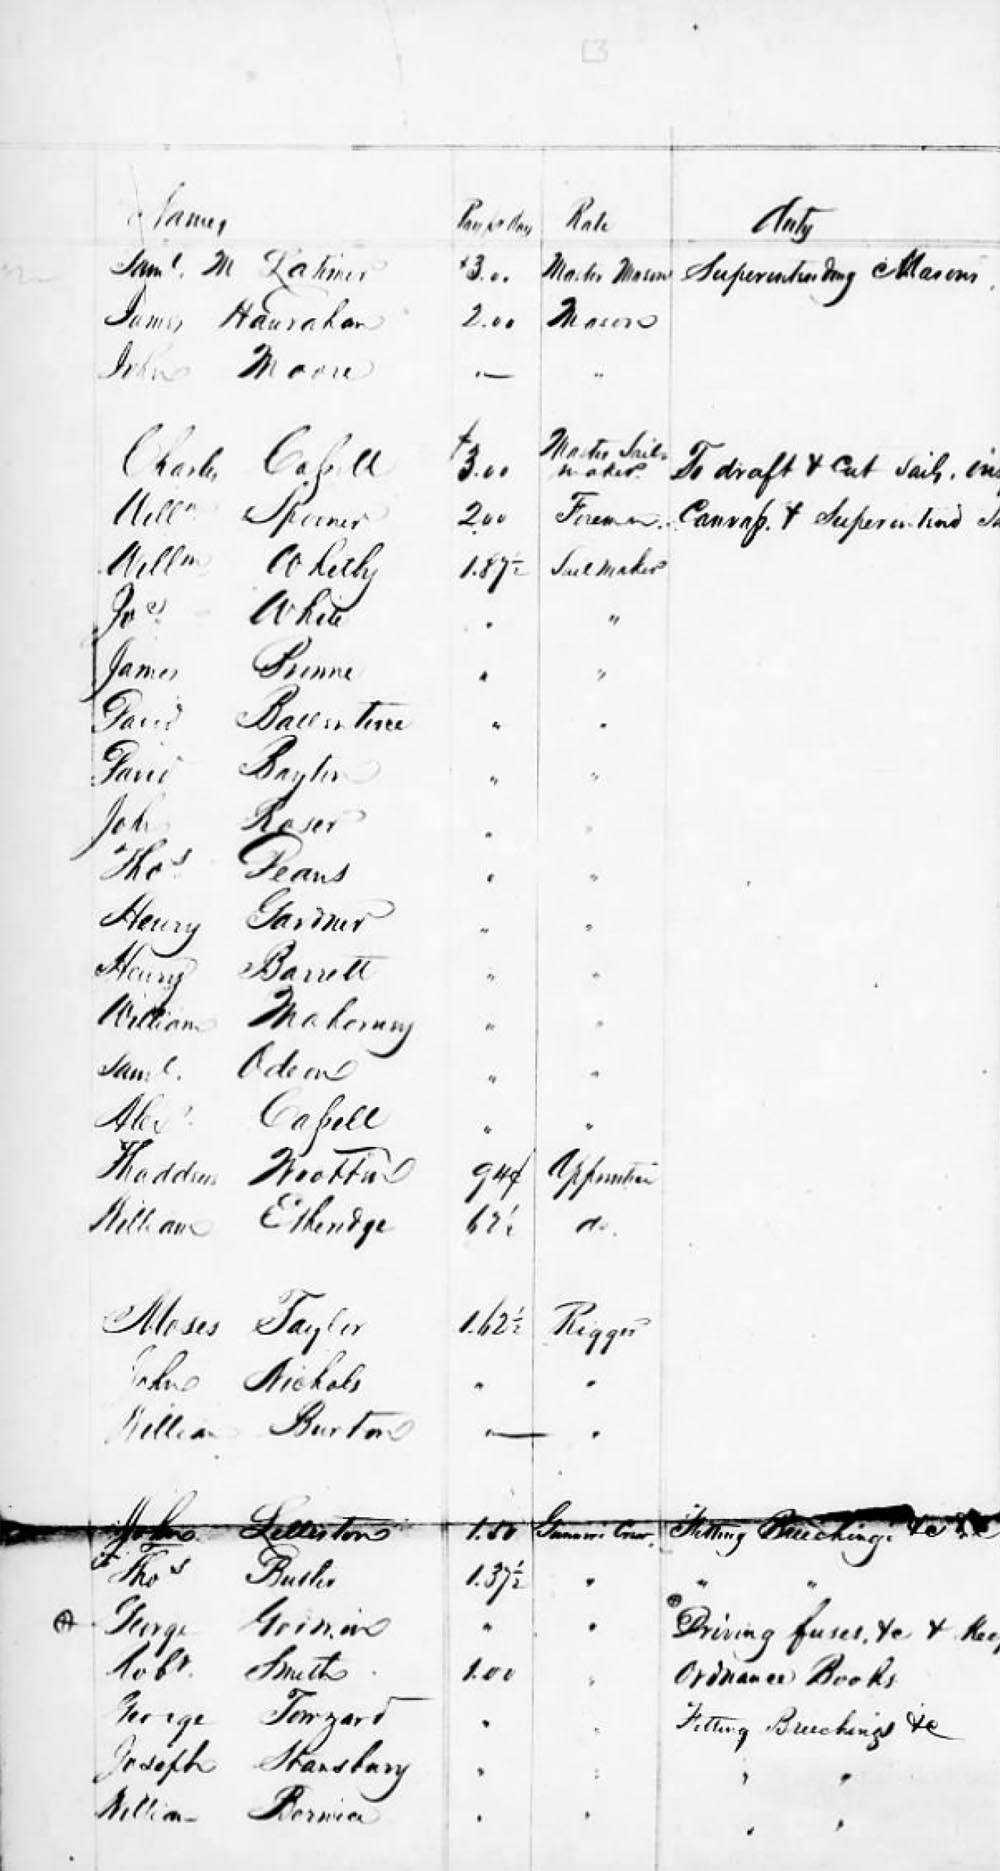 Names Pay pr day Rate Duty
Saml. M Latimer $3.00 Master Mason Superintending Masons.
James Hanrahan 2.00 Mason
John Moore " "
Charles Cassell $3.00 Master Sail maker To draft & Cut Sails, ins
Willm Spooner 2.00 Foreman. Canvass. & Superintend Sa
Willm Whitby 1.87½ Sail Maker
Jos White " "
James " "
David Ballentine " "
David Baylin " "
John Roser " "
Thos Deans " "
Henry Gardner " "
Henry Barrett " "
William Mahoney " "
Saml. Odeon " "
Alexr. Cassell " "
Thaddeus Wootton 94¢ Apprentice
William Etheridge 62½ do.
Moses Taylor 1.62½ Rigger
John Nichols " "
William Burton " "
John Lelliston 1.50 Gunners Crew. Fitting Breechings &c &c
Thos Butler 1.37½ " " "
George Goodwin " " Driving fuses, &c & Keep
Robt. Smith 1.00 " Ordnance Books
George Towzard " " Fitting Breechings &c
Joseph Stansbury " " " "
William " " " "